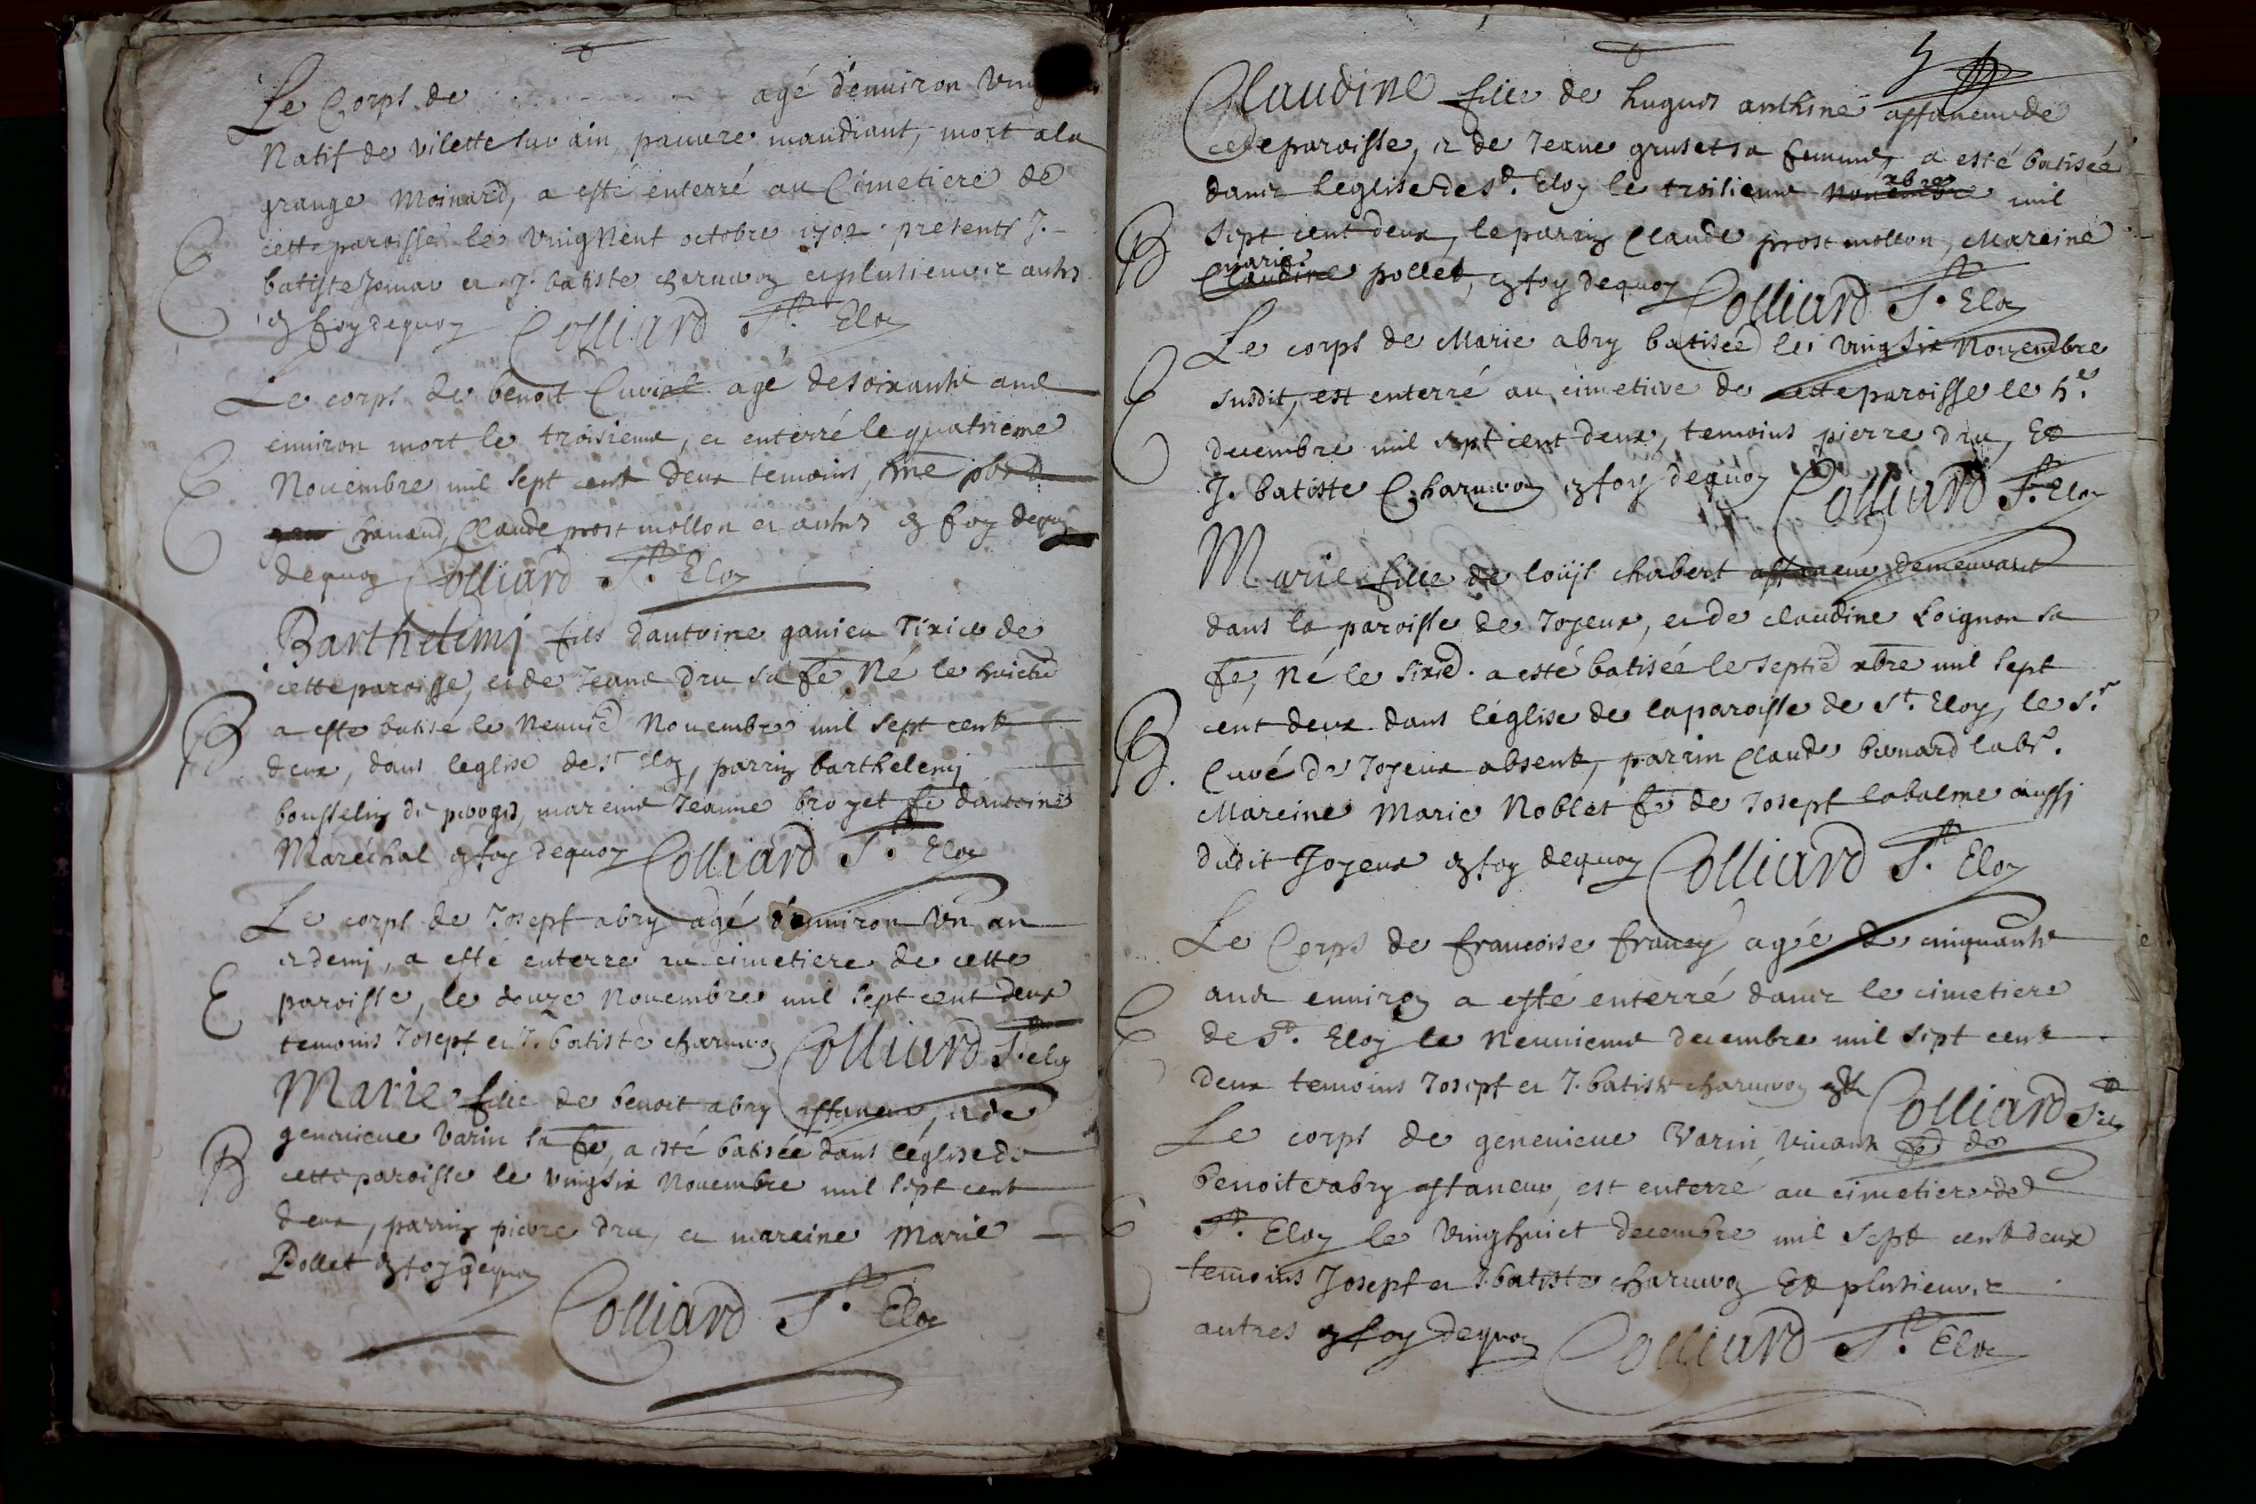 Le Corps de - - - - - - agé denuiron
Natif de vilette sur ain pauure mandiant, mort ala
grange Moinard, a esté enterré au Cimetiere de
cette paroisse le octobre 1702. presents J.
batiste et J. batiste charuvoz et plusieurs autrs
en foy dequoy Colliard St. Eloy
Le corps de benoit agé de soixante ans
enuiron mort le troisieme, et enterré le quatrieme
Nouembre mil sept cent deux temoins,
Chanand, Claude prost mollon et autres en foy dequoy
dequoy Colliard St. Eloy
Barthelemj fils dantoine ganieu Tixier de
cette paroisse, et de Jeane dru sa fe Né le huictie
B a esté batisé le Neuvie Nouembre mil sept cent
deux, dans leglise de St Eloy, parrin barthelemj
bousselin de mareine Jeanne broyet fe dantoine
Maréchal en foy dequoy Colliard St. Eloy
Le corps de Josept abry agé d'enuiron Vn an
et demj, a esté enterré au cimetiere de cette
E paroisse, le douze Nouembre mil sept cent deux
temoins Josept et J. batiste charuvoz Colliard St. eloy
Marie fille de benoit abry affaneur, et de
geneuieue Varin sa fe, a esté batisée dans léglise de
B cette paroisse le vingsix Nouembre mil sept cent
deux, parrin pierre dru, et mareine Marie
Pollet en foy dequoy
Colliard St. Eloy
Claudine fille de hugues anthine affaneur de
cette paroisse, et de Jeane gruset sa femme, a esté batisée
dans leglise de St. Eloy le troisieme Nouembre xbre mil
B sept cent deux, le parrin Claude prost mollon, Mareine
Claudine marie pollet, en foy dequoy Colliard St. Eloy
Le corps de Marie abry batisée le vingsix Nouembre
susdit, est enterré au cimetiere de cette paroisse le 5e
decembre mil sept cent deux, temoins pierre dru, Et
J. batiste Charuvoz en foy dequoy Colliard St. Eloy
Marie fille de loüis chabert affaneur demeurant
dans la paroisse de Joyeux, et de claudine Loignon sa
fe, Né le sixie. a esté batisée le septie xbre mil sept
cent deux dans léglise de la paroisse de St. Eloy, le Sr
B. Curé de Joyeux absent, parrin Claude bernard labr.
Mareine Marie Noblet fe de Josept labalme aussj
dudit Joyeux en foy dequoy Colliard St. Eloy
Le Corps de francoise francey agé de cinquante
ans enuiron a esté enterré dans le cimetiere
de St. Eloy le Neuuieme decembre mil sept cent
deux temoins Josept et J. batiste charuvoz Colliard St. el
Le corps de geneuieue Varin Viuant fe de
benoit abry affaneur, est enterré au cimetiere de
St. Eloy le vinghuict decembre mil sept cent deux
temoins Josept et J. batiste charuvoz Et plusieurs
autres en foy dequoy Colliard St. Eloy